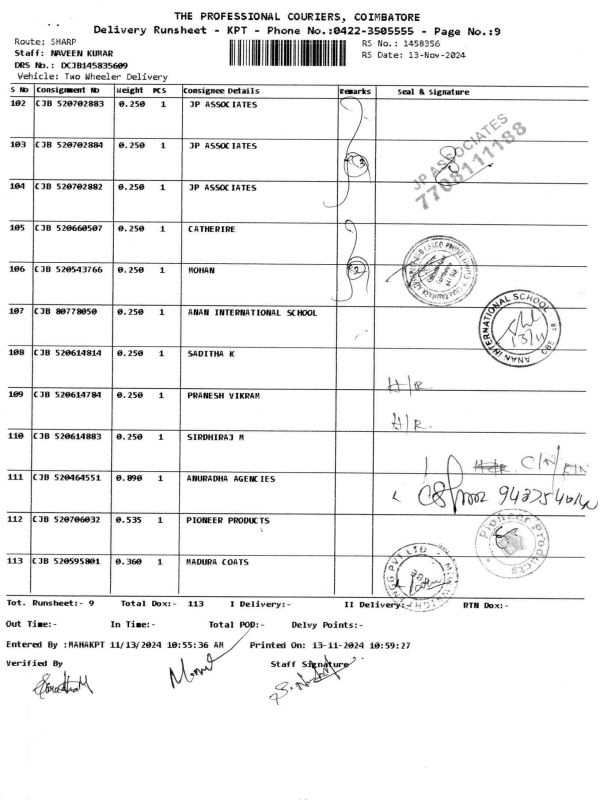 THE PROFESSIONAL COURIERS, COIMBATORE
Delivery Runsheet - KPT - Phone No.:0422-3505555 - Page No.:9
Route; SHARP
RS No.: 1458356
Staff: NAVEEN KUMAR
RS Date: 13-Nov-2024
DRS No.: DCJB145835609
Vehicle: Two Wheeler Delivery
S No Consignment No Weight PCS Consignee Details Remarks Seal & Signature
102 CJB 520702883 0.250 1 JP ASSOCIATES
103 CJB 520702884 0.250 1 JP ASSOCIATES
3
JP ASSOCIATES
7708111188
104 CJB 520702882 0.250 1 JP ASSOCIATES
105 CJB 520660507 0.250 1 CATHERIRE
106 CJB 520543766 0.250 1 MOHAN
2
107 CJB 80778050 0.250 1 ANAN INTERNATIONAL SCHOOL
ANAN INTERNATIONAL SCHOOL
13/11
108 CJB 520614814 0.250 1 SADITHA K
H/R.
109 CJB 520614784 0.250 1 PRANESH VIKRAM
H/R.
110 CJB 520614883 0.250 1 SIRDHIRAJ M
111 CJB 520464551 0.890 1 ANURADHA AGENCIES
112 CJB 520706032 0.535 1 PIONEER PRODUCTS
Pioneer Products
113 CJB 520595801 0.360 1 MADURA COATS
Tot. Runsheet:- 9 Total Dox:- 113 I Delivery:- II Delivery:- RTN Dox:-
Out Time:- In Time:- Total POD:- Delvy Points:-
Entered By :MAHAKPT 11/13/2024 10:55:36 AM Printed On: 13-11-2024 10:59:27
Verified By Staff Signature